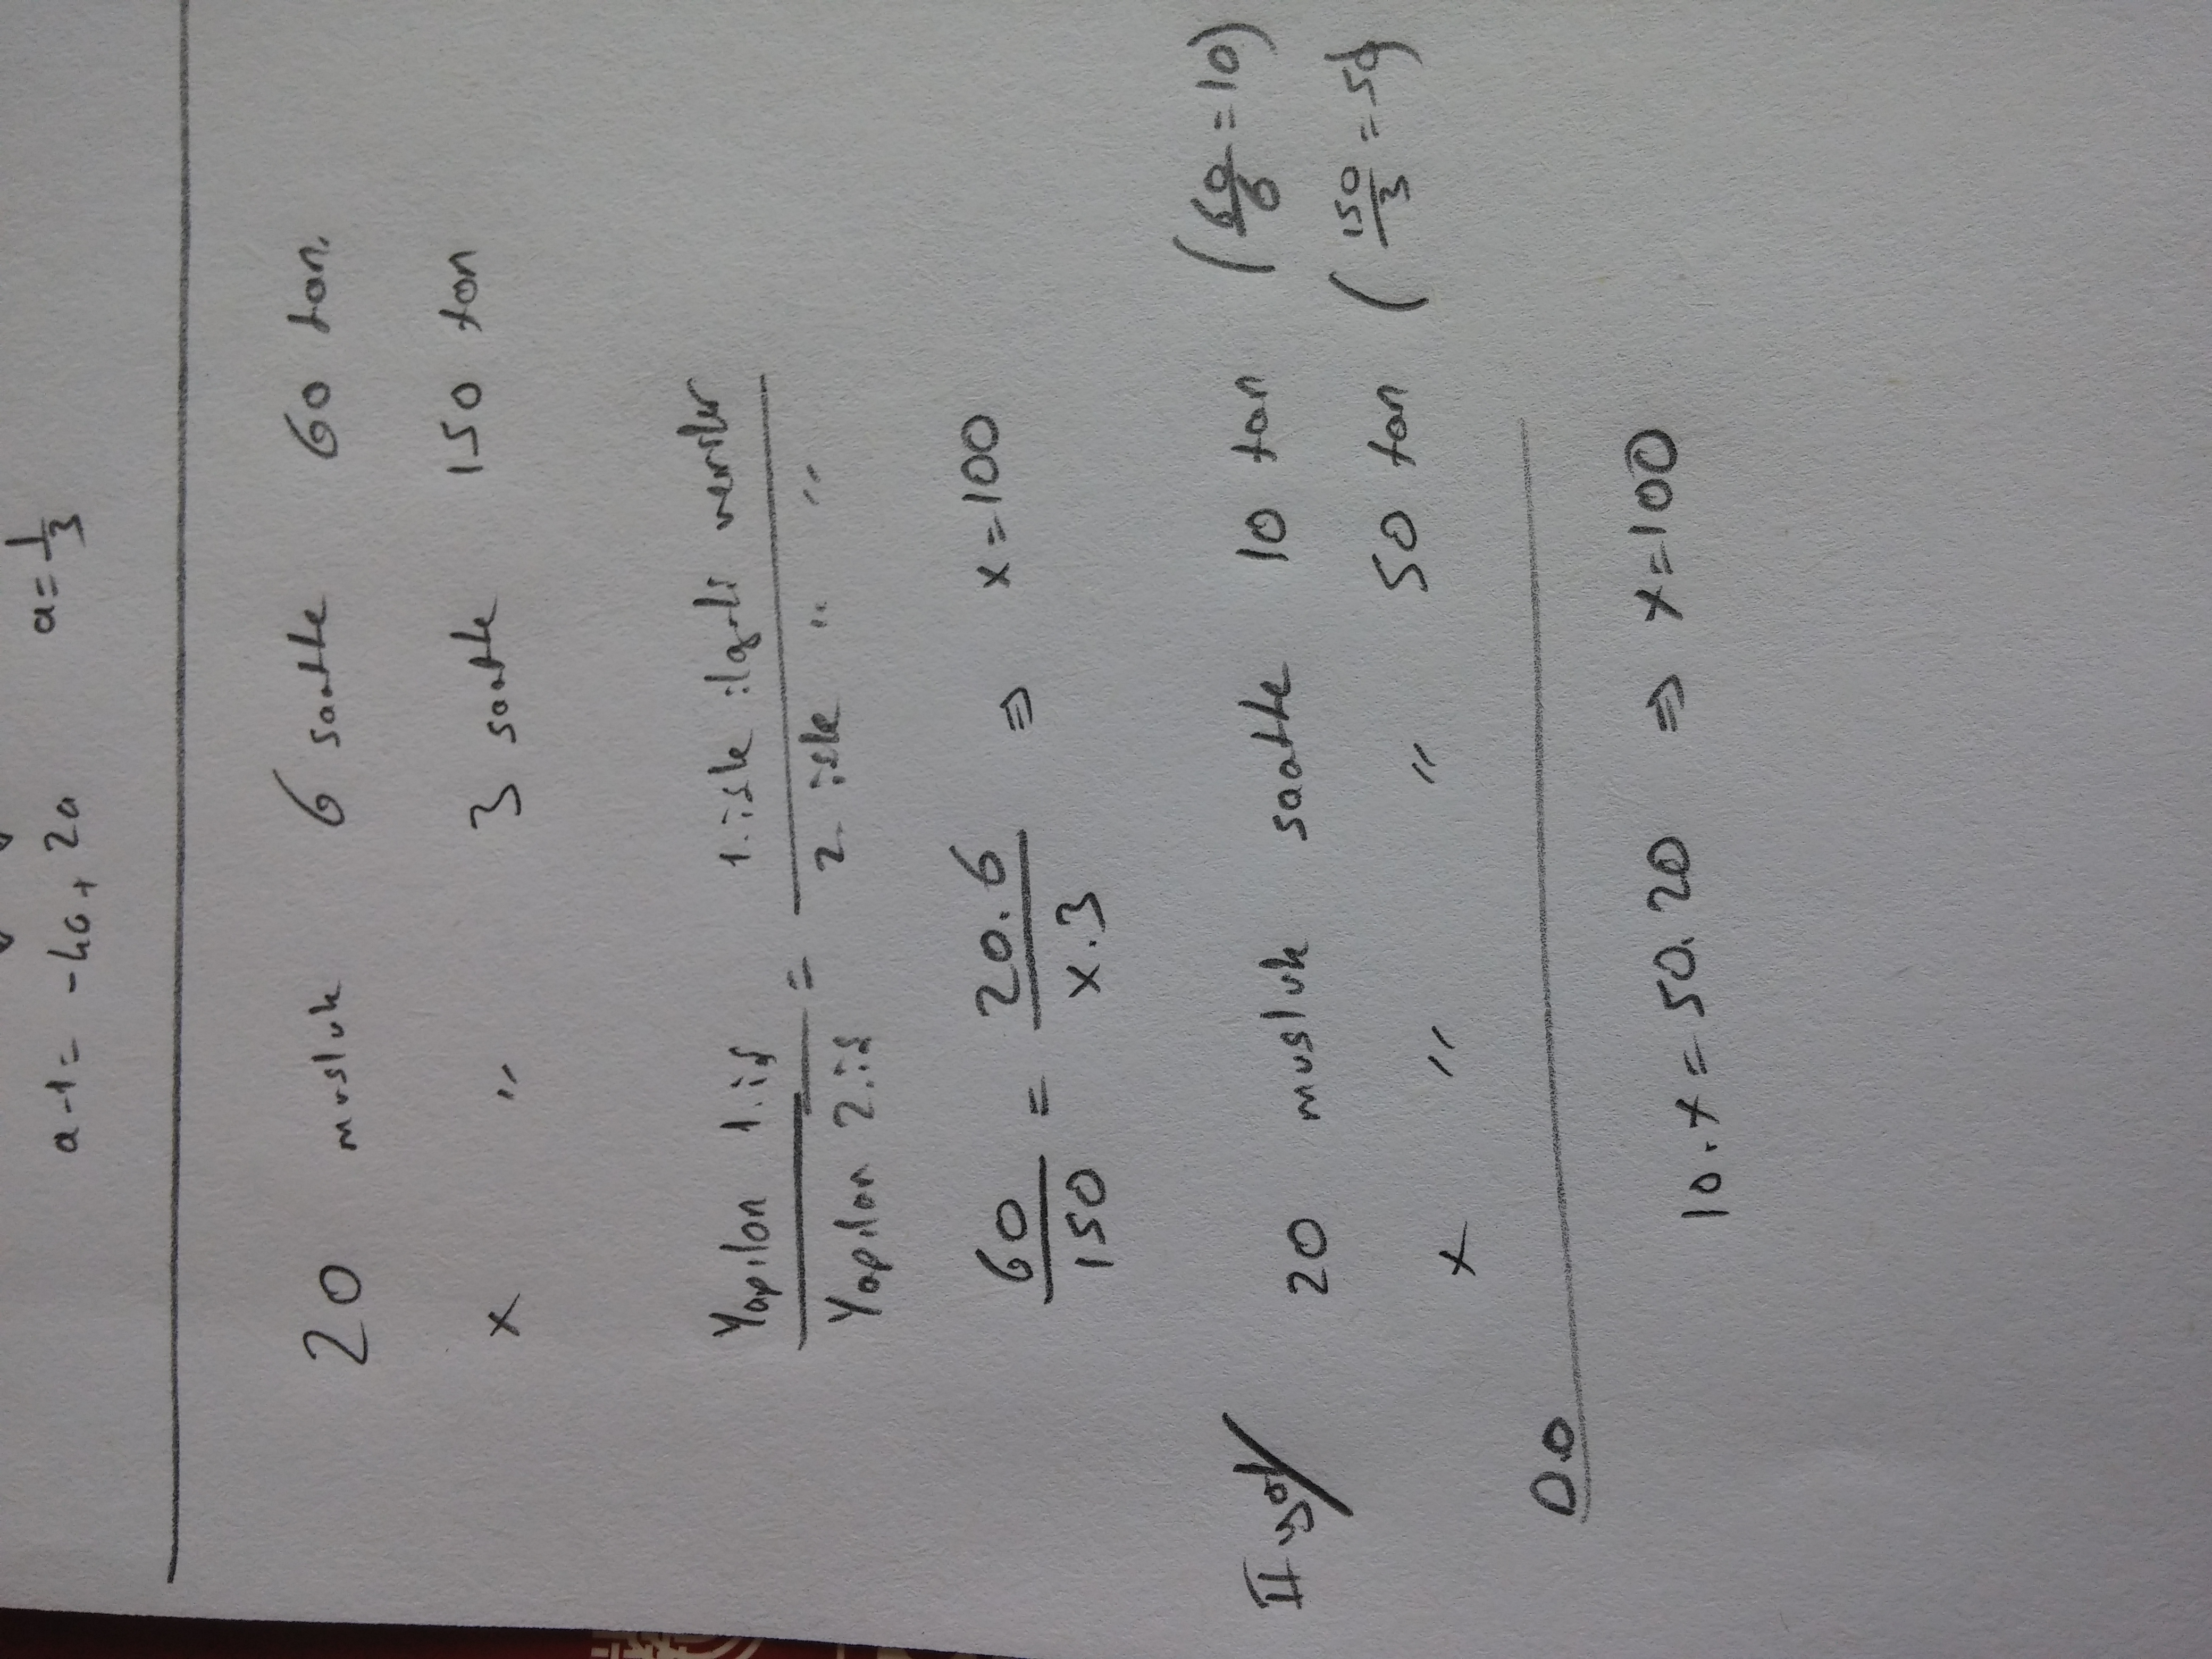 a-1 = -4a + 2a    a = 1/3
20 musluk 6 saatte 60 ton.
x " 3 saatte 150 ton
Yapılan 1.iş / Yapılan 2.iş = 1.işle ilgili veriler / 2.işle " "
60/150 = 20.6/x.3 ⇒ x=100
II.yol/ 20 musluk saatte 10 ton (60/6=10)
x " " 50 ton (150/3=50)
D.O
10.x=50.20 ⇒ x=100